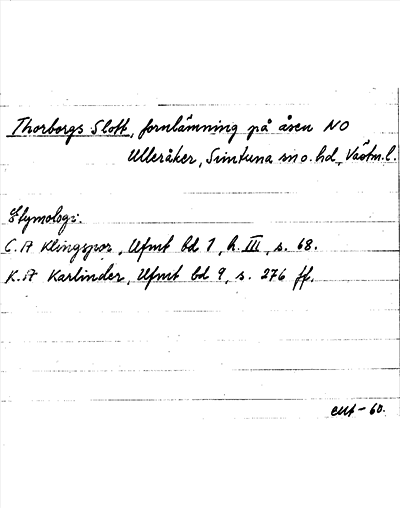 Thorborgs Slott, fornlämning på åsen NO
Ulleråker, Simtuna sn o. hd, Västm.l.
Etymologi.
C. A Klingspor, Ufmt bd 1, h. III, s. 68.
K. A Karlinder, Ufmt bd 9, s. 276 ff.
-60.